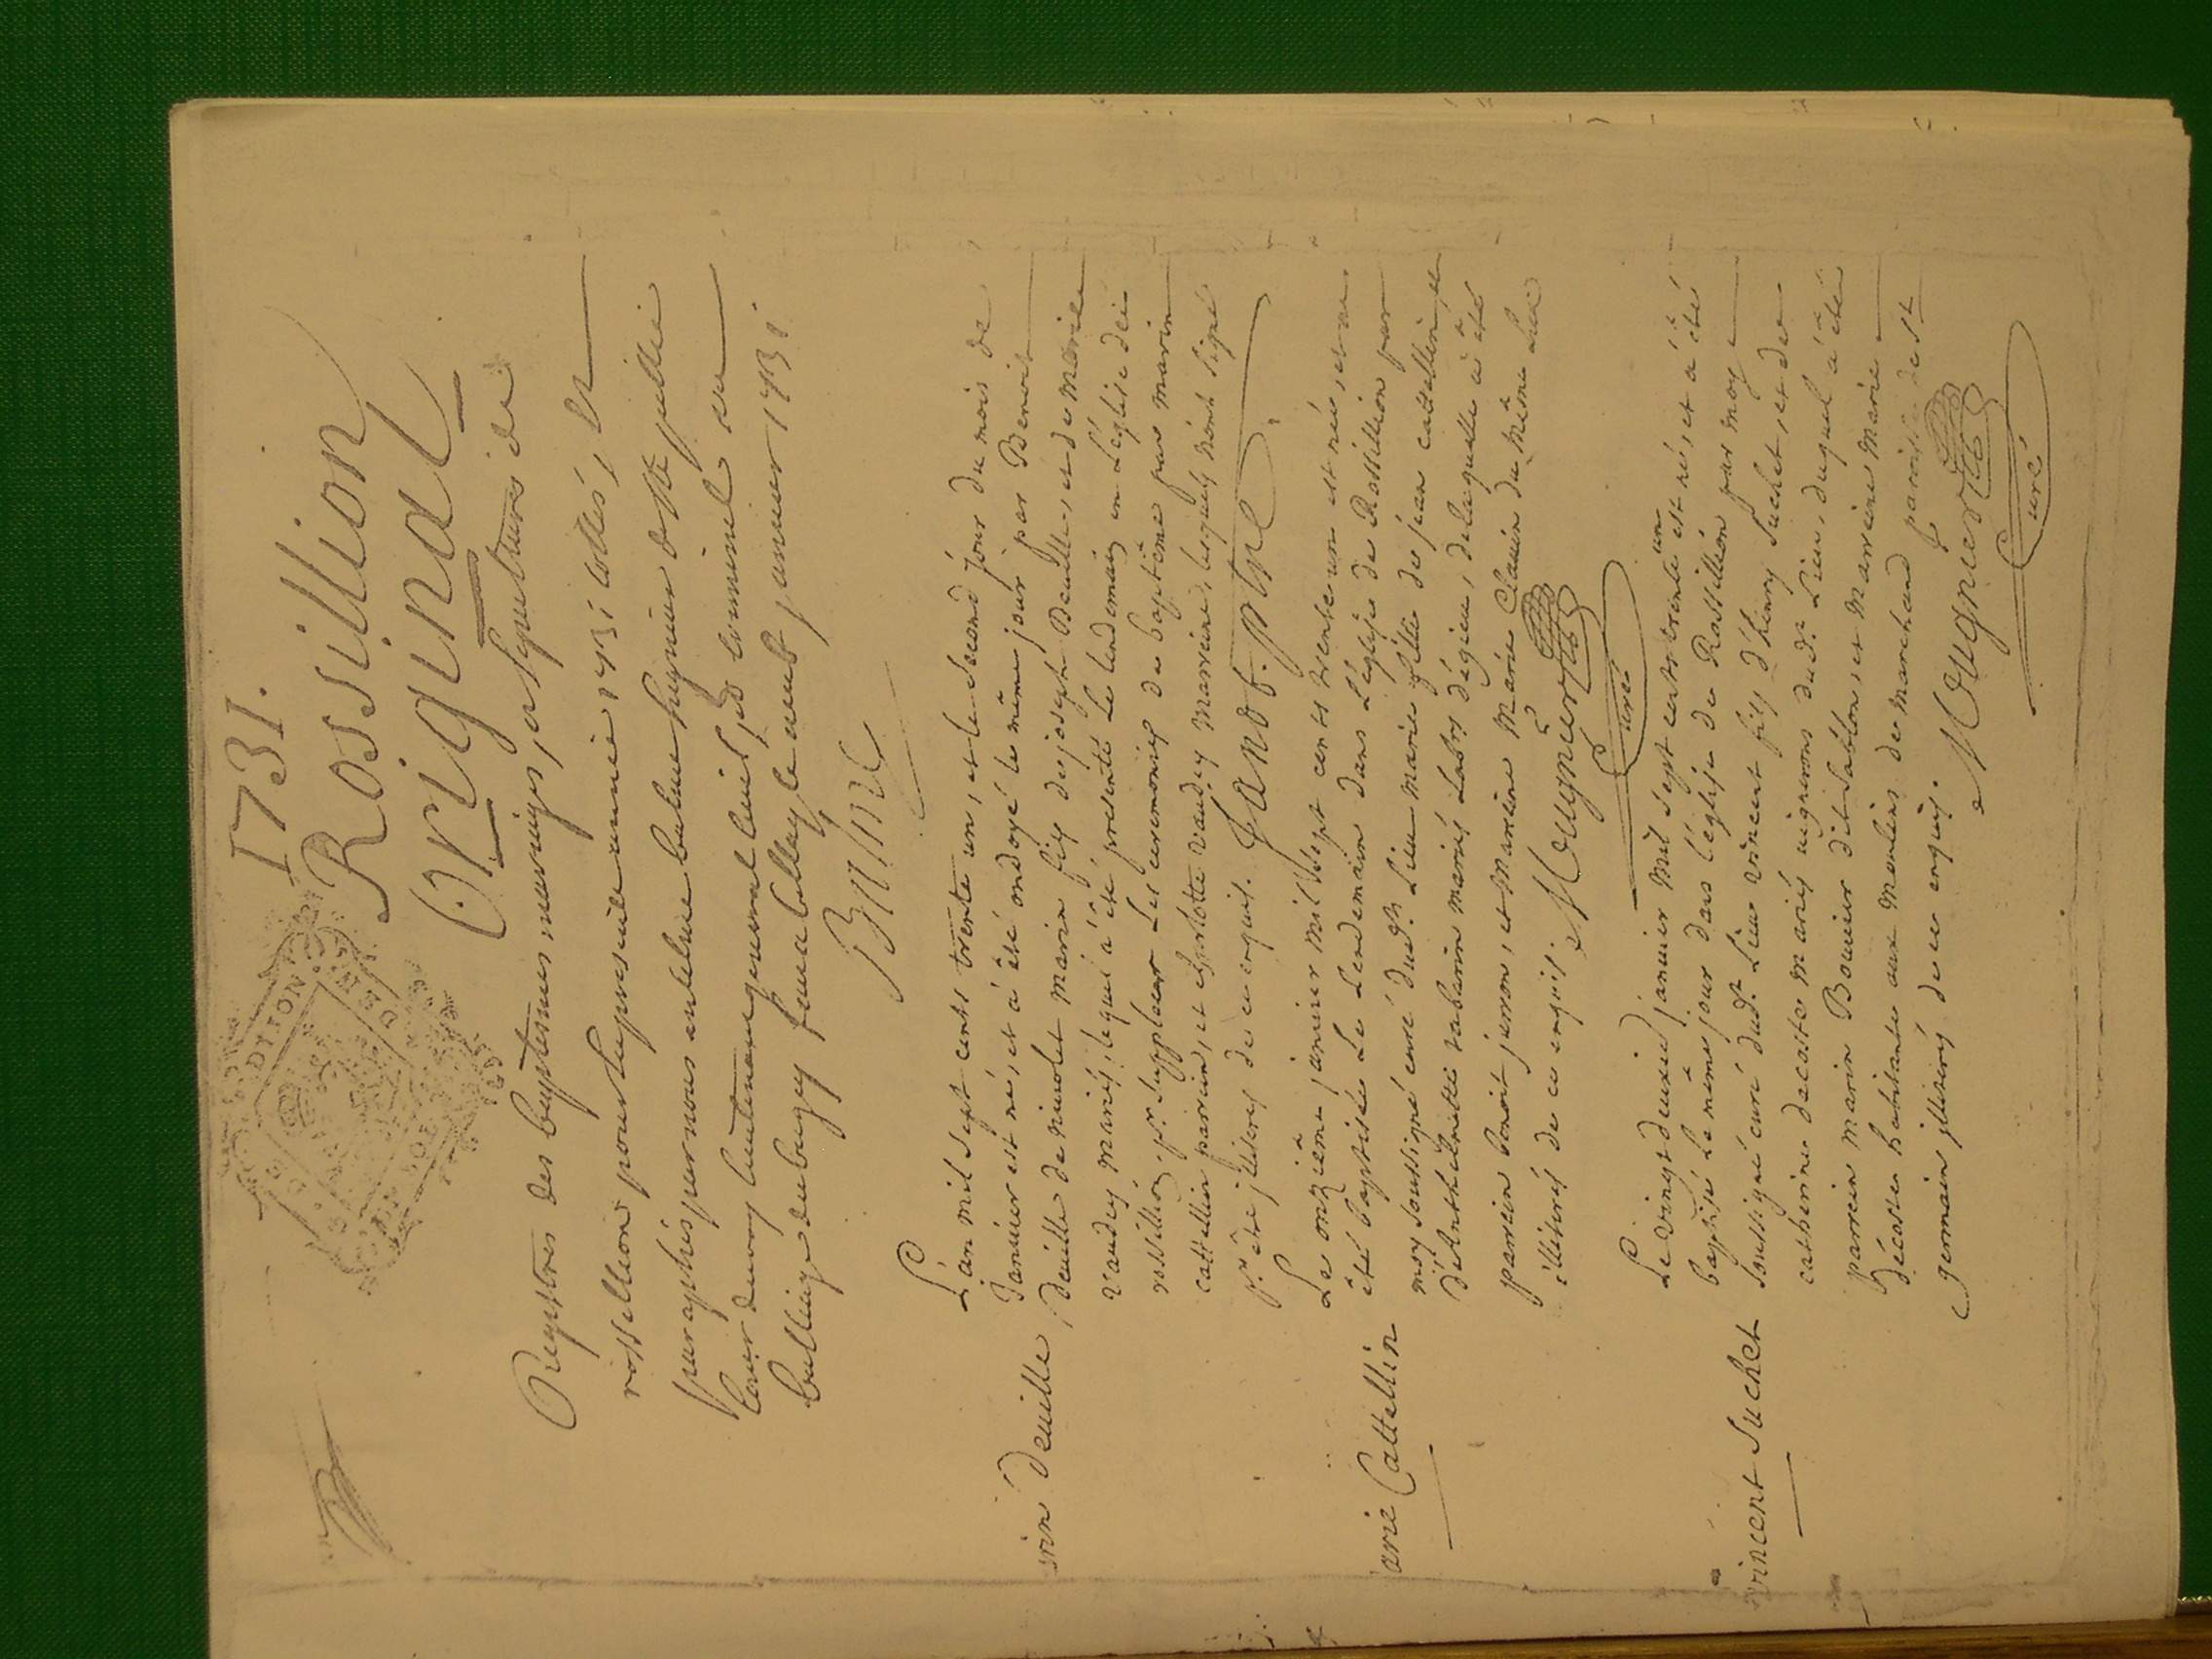 1731.
Rossillion
Original
DIJON
Registres des baptesmes mariages, et sepultures de
rossillion pour la presente année 1731 cottés, et
paraphés par nous antelme balme
cour de lieutenant general civil et criminel au
bailliage du bugey fait a belley le janvier 1731
Balme
L'an mil sept cents trente un, et le second jour du mois de
Janvier est né, et a êté ondoyé le même jour par Benoit
rin Deuille
Deuille de marin fils de joseph Deuille, et de marie
vaudey mariés, lequel a êté presenté le lendemain en L'église de
rossillion pr. suppleer les ceremonies de baptême par marin
cattellin parrein, et charlotte vaudey marreine, lesquels n'ont signé
pr. être jlliterés de ce enquis. Janot. ptre
Le onzième janvier mil sept cents trente un est née, et a
êté baptisée Le Lendemain dans L'église de Rossillion par
arie Cattellin
moy soussigné curé dudt. Lieu marie fille de jean cattellin, et
d'Anthelmette rabarin mariés Labrs d'égieu, de laquelle a êté
parrein benoit jannon, et Marreine Marie Clauin du même Lieu
illiterés de ce enquis. Mougnier
Curé
Le vingt deuxie janvier mil sept cents trente un est né, et a êté
baptisé Le même jour dans l'église de Rossillion par moy
vincent Suchet
soussigné curé dudt. Lieu vincent fils d'henry Suchet, et de
catherine decoste mariés vignerons dudt. Lieu, duquel a êté
parrein marin Bouvier dit Sablon, et Marreine Marie
décoste habitante aux moulins de marchand paroisse de St
germain jlliterés de ce enquis.
Mougnier
Curé